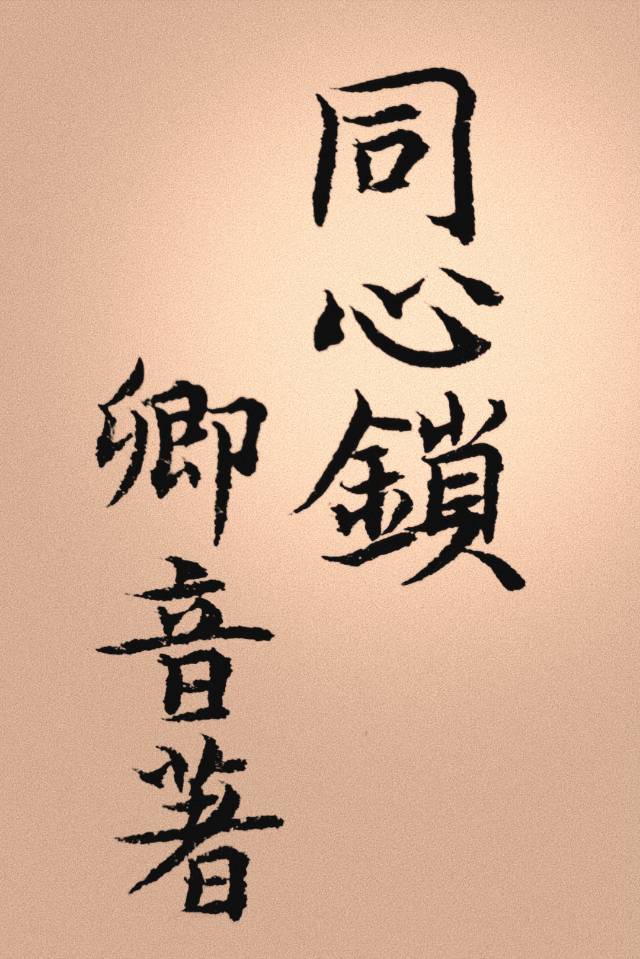 同心鎖
卿音著